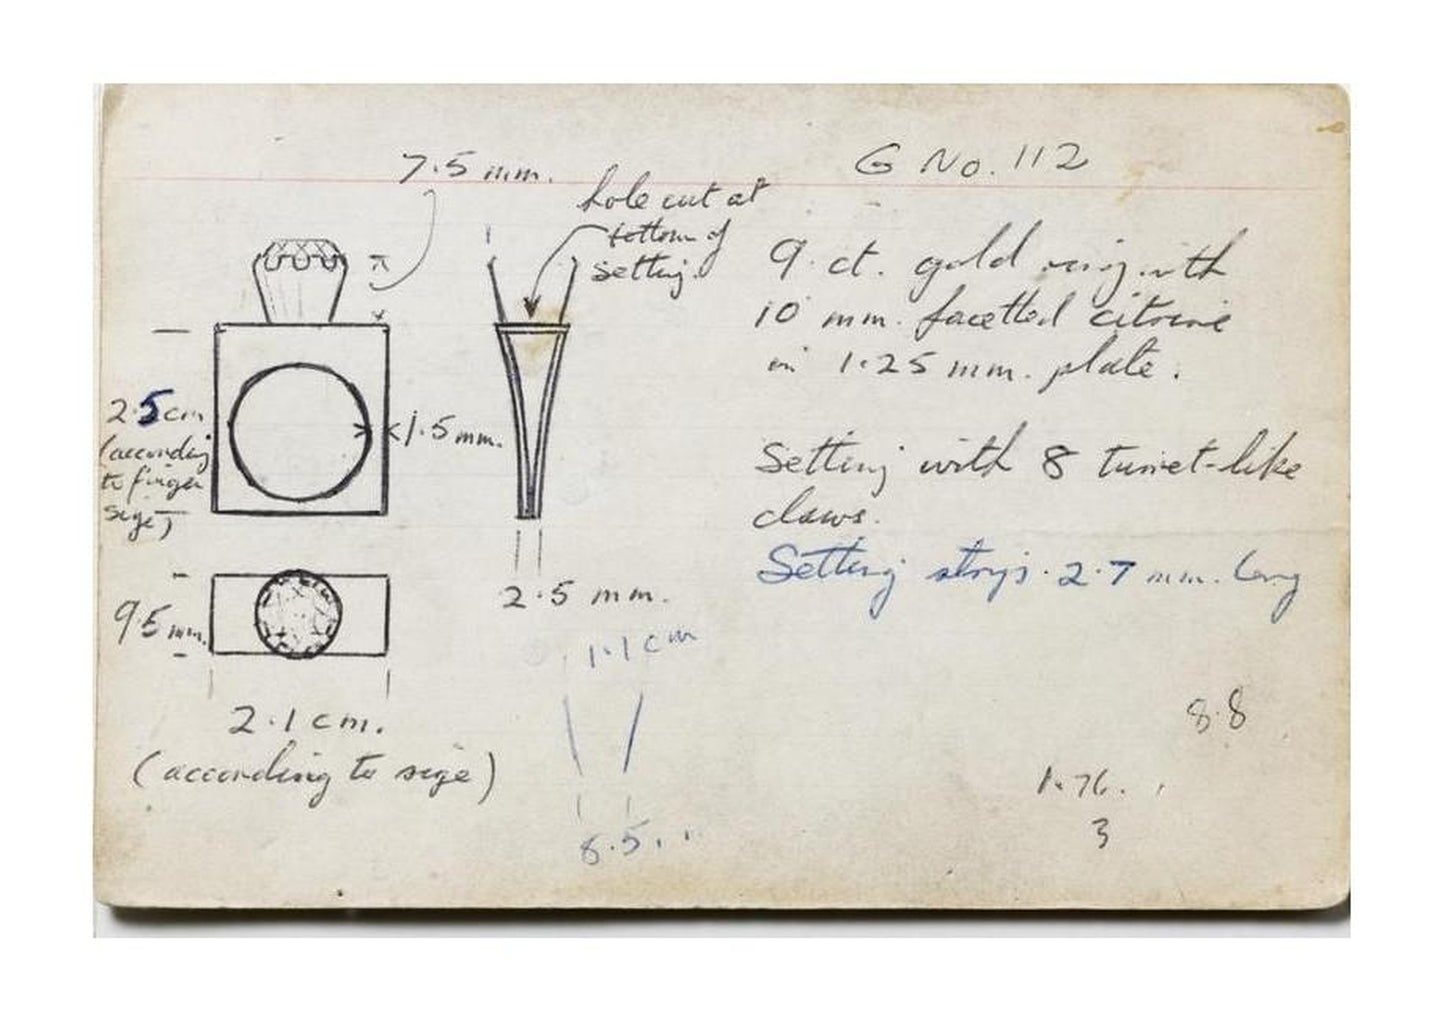 G No. 112
7.5 mm.
hole cut at
bottom of
setting.
9. ct. gold ring with
10 mm. facetted citrine
in 1.25 mm. plate.
2.5 cm
(according
to finger
size)
1.5 mm.
Setting with 8 turret-like
claws.
Setting strips. 2.7 mm. long
2.5 mm.
9.5 mm.
1.1 cm
2.1 cm.
(according to size)
8.8
1.76.
3
8.5